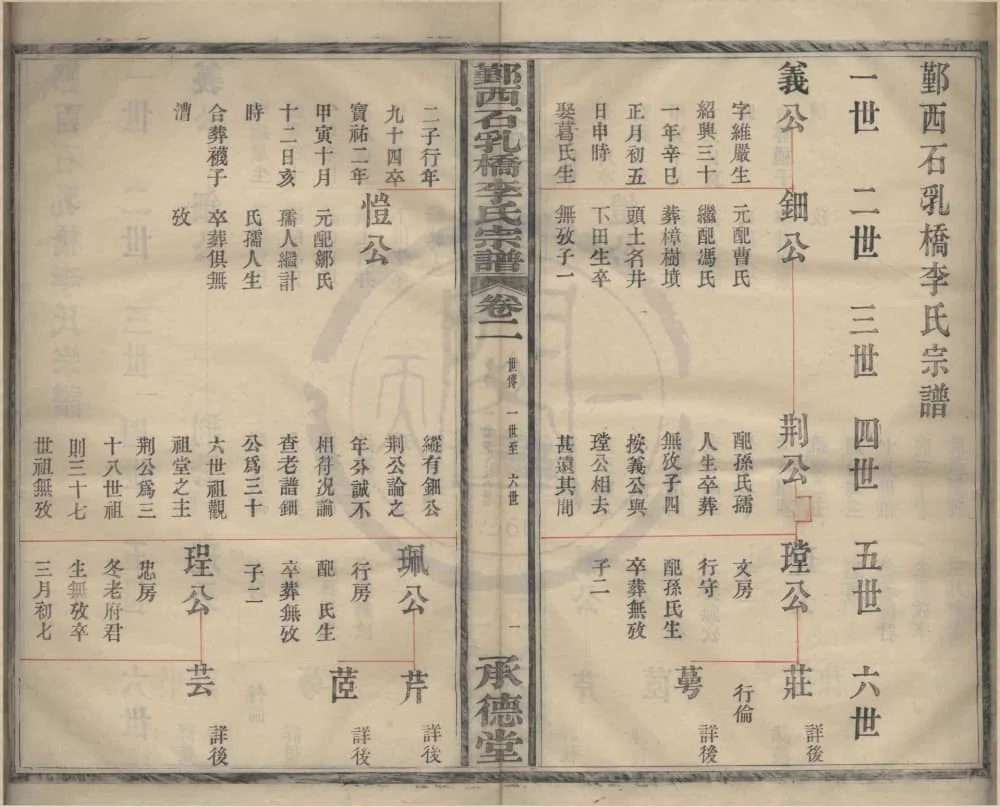 鄞西石乳橋李氏宗譜
一世 二世 三世 四世 五世 六世
義公
字維嚴生
紹興三十
一年辛巳
正月初五
日申時
娶葛氏生
二子行年
九十四卒
寶祐二年
甲寅十月
十二日亥
時
合葬襪子
漕
鈿公
元配曹氏
繼配馮氏
葬樟樹墳
頭土名井
下田生卒
無攷子一
愷公
元配鄒氏
孺人繼計
氏孺人生
卒葬俱無
攷
荆公
配孫氏孺
人生卒葬
無攷子四
按義公與
瑝公相去
甚遠其間
縱有鈿公
荆公論之
年分誠不
相符况論
查老譜鈿
公爲三十
六世祖觀
祖堂之主
荆公爲三
十八世祖
則三十七
世祖無攷
瑝公
文房
行守
配孫氏生
卒葬無攷
子二
珮公
行房
配 氏生
卒葬無攷
子二
珵公
忠房
冬老府君
生無攷卒
三月初七
莊
行倫
詳後
蕚
詳後
芹
詳後
茝
詳後
芸
詳後
鄞西石乳橋李氏宗譜
卷二
世傳 一世至 六世
一
承德堂